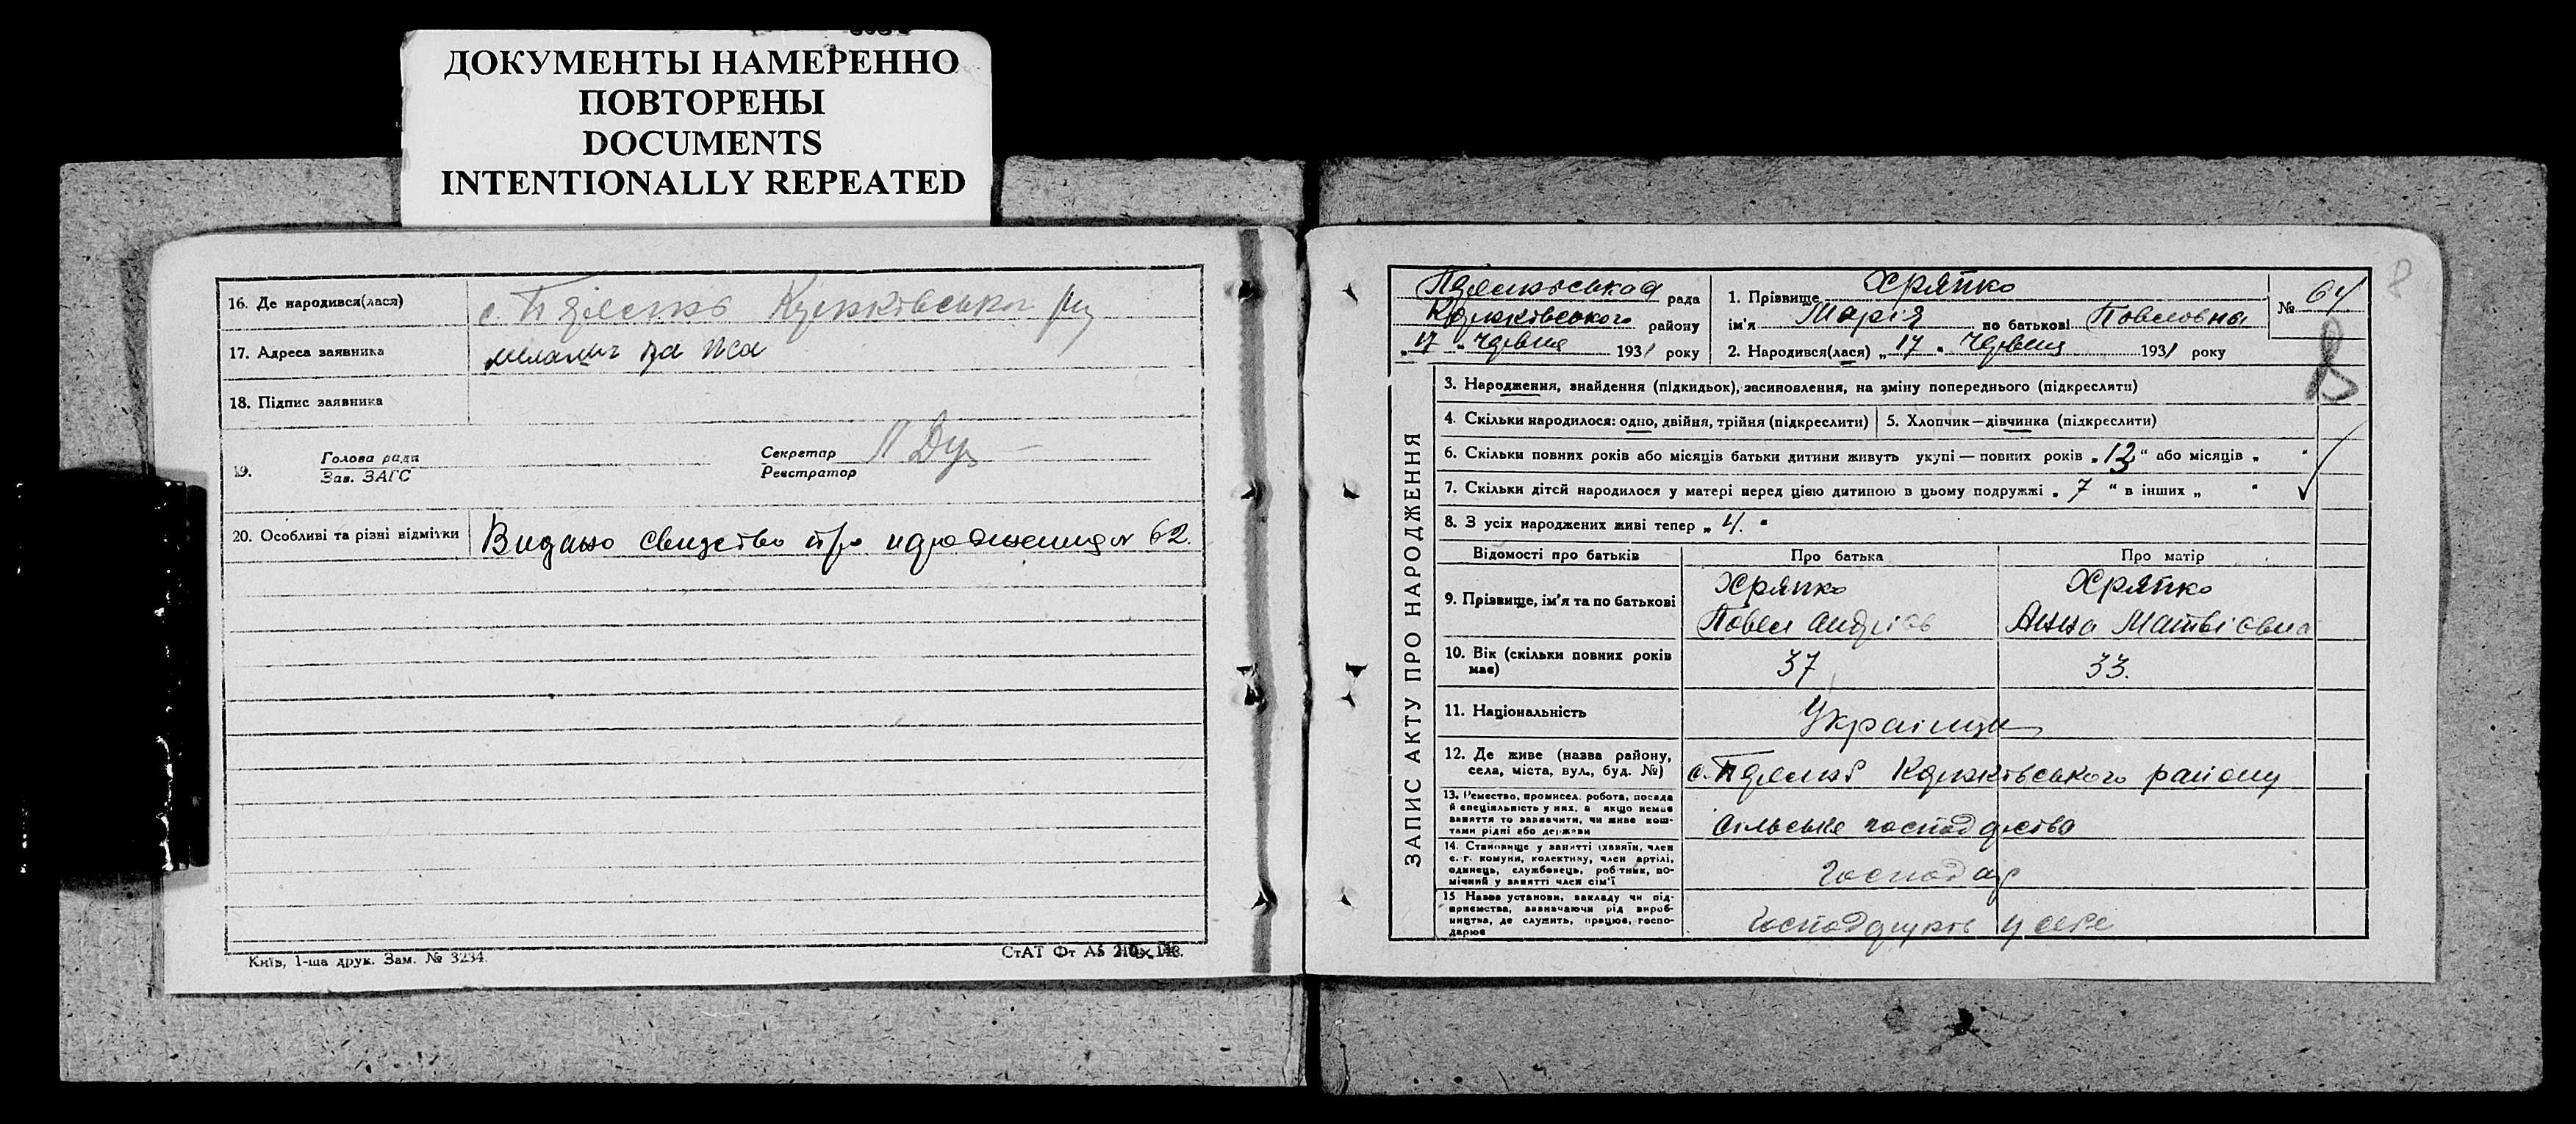 ДОКУМЕНТЫ НАМЕРЕННО
ПОВТОРЕНЫ
DOCUMENTS
INTENTIONALLY REPEATED
16. Де народився(лася)
с.
17. Адреса заявника
18. Підпис заявника
19. Голова ради
Зав. ЗАГС
Секретар
Реєстратор
20. Особливі та різні відмітки
Видано свидство про народження № 62.
Київ, 1-ша друк. Зам. № 3234.
СтАТ Фт А5
рада
району
"17" Червня 1931 року
1. Прізвище Хряпко
ім'я Марія по батькові Павловна
2. Народився(лася) "17" Червня 1931 року
№ 64
8
ЗАПИС АКТУ ПРО НАРОДЖЕННЯ
3. Народження, знайдення (підкидьок), засиновлення, на зміну попереднього (підкреслити)
4. Скільки народилося: одно, двійня, трійня (підкреслити)
5. Хлопчик—дівчинка (підкреслити)
6. Скільки повних років або місяців батьки дитини живуть укупі — повних років "13" або місяців " "
7. Скільки дітей народилося у матері перед цією дитиною в цьому подружжі "7" в інших " "
8. З усіх народжених живі тепер "4."
Відомості про батьків
Про батька
Про матір
9. Прізвище, ім'я та по батькові
Хряпко
Павел Андріів
Хряпко
Анна Матвіовна
10. Вік (скільки повних років має)
37
33.
11. Національність
Українци
12. Де живе (назва району,
села, міста, вул., буд. №)
с. району
13. Ремество, промисел, робота, посада
й спеціяльність у них, а якщо немає
заняття то зазначити, чи живе кош-
тами рідні або держави
сільське господарство
14. Становище у занятті (хазяїн, член
с.-г. комуни, колективу, член артілі,
одинець, службовець, робітник, по-
мічний у занятті член сім'ї
Господар
15 Назва установи, закладу чи під-
приємства, зазначаючи рід вироб-
ництва, де служить, працює, госпо-
дарює
Господарують у себе